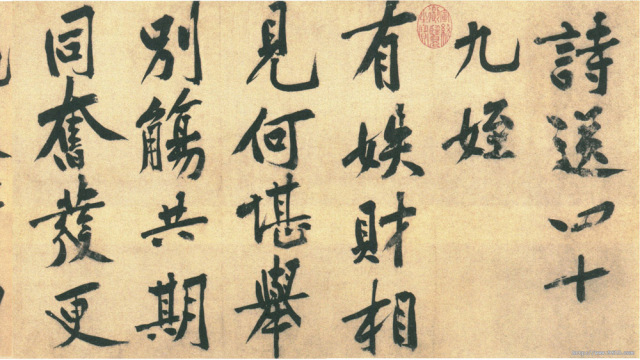 詩送四十
九姪
有財相
見何堪舉
別觴共期
同奮發更